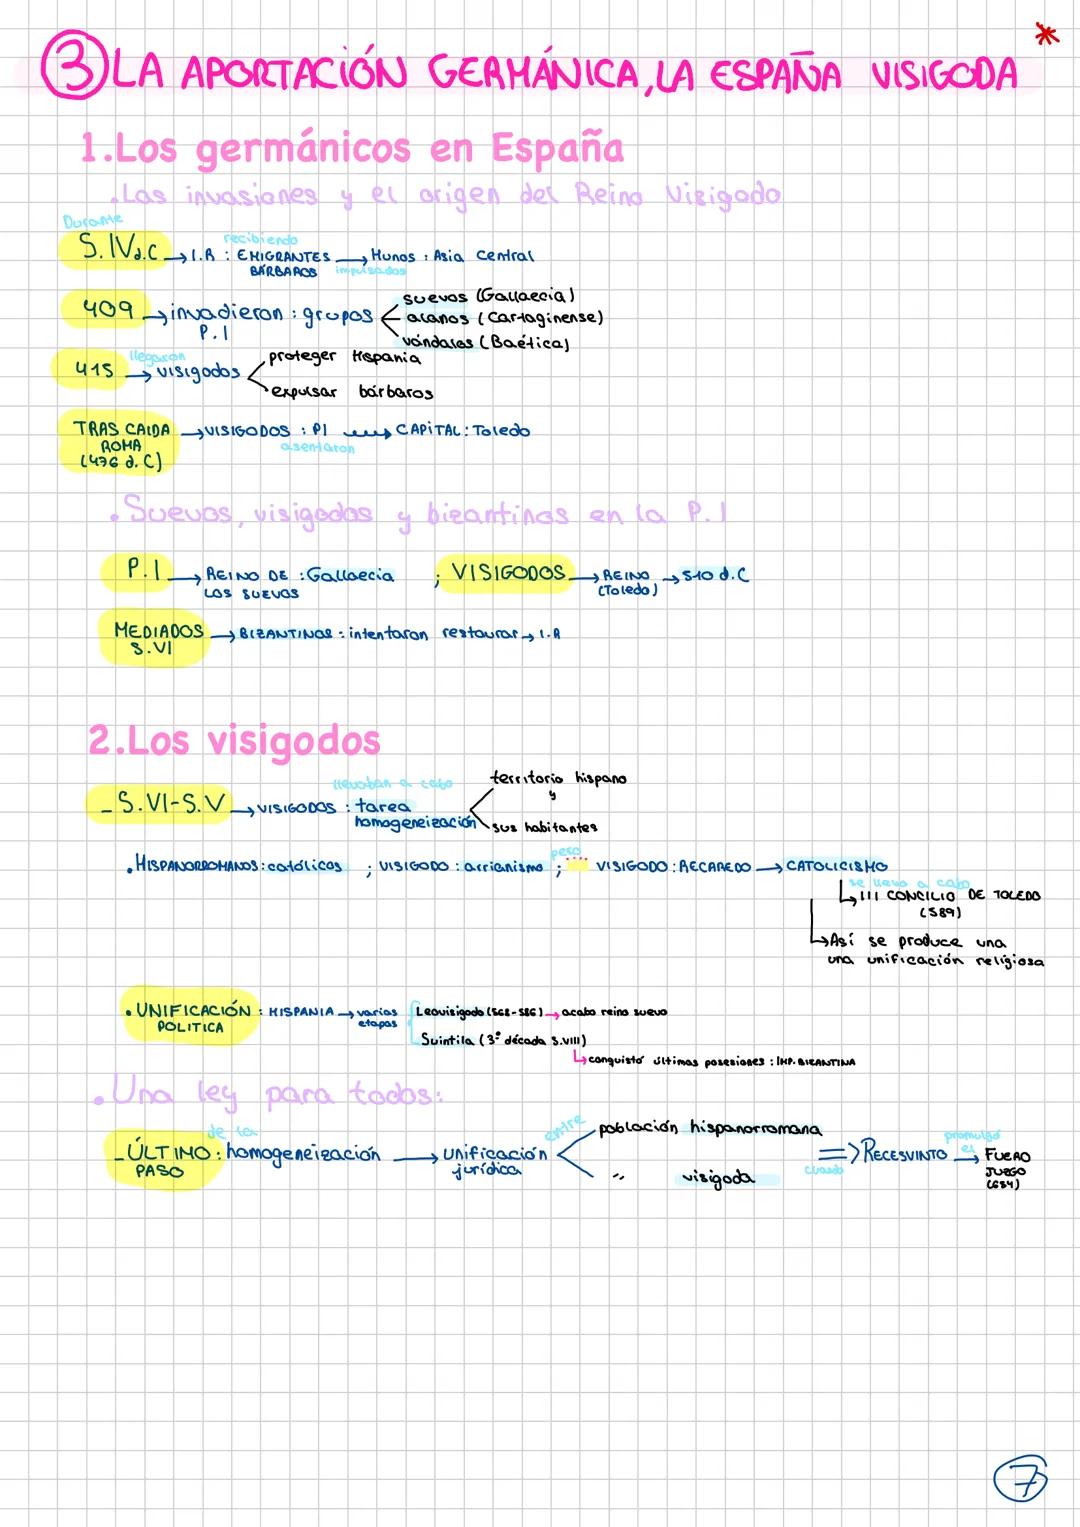 *
③ LA APORTACIÓN GERMÁNICA, LA ESPAÑA VISIGODA
1.Los germánicos en España
. Las invasiones y el origen del Reino Visigodo
Durante
S. IV d.C → I.R : EMIGRANTES BÁRBAROS recibiendo → impulsados Hunos : Asia Central
409 → invadieron P.I : grupos < suevos (Gallaecia)
alanos (Cartaginense)
vándalos (Baética)
415 → llegaron visigodos < proteger Hispania
expulsar bárbaros
TRAS CAIDA ROMA (476 d.C) → VISIGODOS : PI → asentaron CAPITAL: Toledo
. Suevos, visigodos y bizantinos en la P.I
P.I → REINO DE LOS SUEVOS : Gallaecia ; VISIGODOS → REINO (Toledo) → 510 d.C
MEDIADOS S.VI → BIZANTINOS : intentaron restaurar → I.R
2.Los visigodos
- S.VI-S.V → VISIGODOS : llevaban a cabo tarea homogeneización < territorio hispano
y
sus habitantes
. HISPANORROMANOS: católicos ; VISIGODO : arrianismo ; pero... VISIGODO : RECAREDO → CATOLICISMO
se llevo a cabo
↳ III CONCILIO DE TOLEDO
(589)
↳ Así se produce una
una unificación religiosa
. UNIFICACIÓN POLITICA : HISPANIA → varias etapas
Leovigodo (568-586) → acabo reino suevo
Suintila (3ª década S.VIII)
↳ conquistó últimas posesiones : IMP. BIZANTINA
. Una ley para todos:
- ÚLTIMO PASO : de la homogeneización → unificación jurídica entre < población hispanorromana
" visigoda
=> cuando RECESVINTO → promulgó el FUERO JUZGO (654)
7